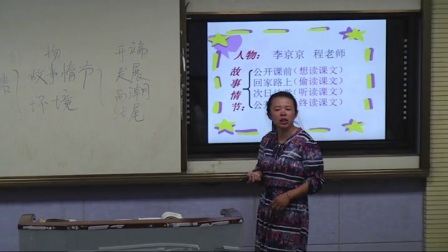 人物：李京京 程老师
故事情节：
公开课前（想读课文）
回家路上（偷读课文）
次日
读课文）
公
终读课文）
故事情节
环境
开端
发展
高潮
结尾